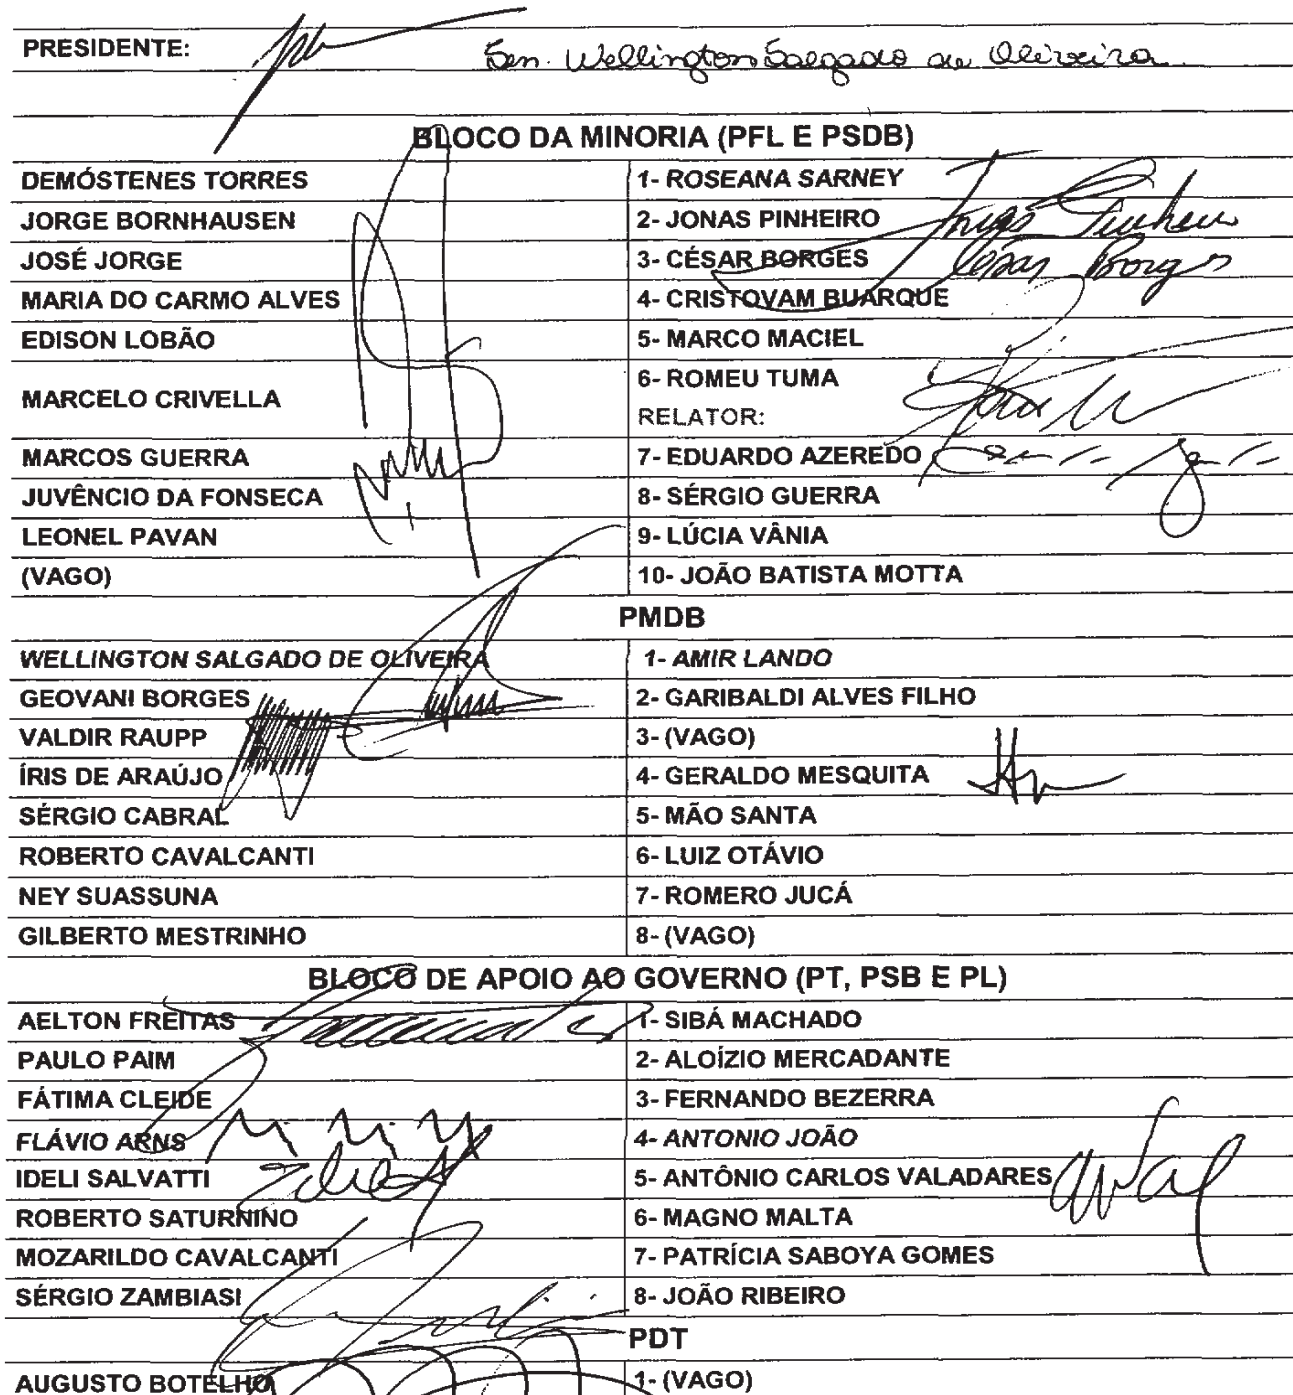 PRESIDENTE: Sen. Wellington Salgado de Oliveira
BLOCO DA MINORIA (PFL E PSDB)
DEMÓSTENES TORRES 1- ROSEANA SARNEY
JORGE BORNHAUSEN 2- JONAS PINHEIRO Jonas Pinheiro
JOSÉ JORGE 3- CÉSAR BORGES César Borges
MARIA DO CARMO ALVES 4- CRISTOVAM BUARQUE
EDISON LOBÃO 5- MARCO MACIEL
MARCELO CRIVELLA 6- ROMEU TUMA
RELATOR:
MARCOS GUERRA 7- EDUARDO AZEREDO
JUVÊNCIO DA FONSECA 8- SÉRGIO GUERRA
LEONEL PAVAN 9- LÚCIA VÂNIA
(VAGO) 10- JOÃO BATISTA MOTTA
PMDB
WELLINGTON SALGADO DE OLIVEIRA 1- AMIR LANDO
GEOVANI BORGES 2- GARIBALDI ALVES FILHO
VALDIR RAUPP 3- (VAGO)
ÍRIS DE ARAÚJO 4- GERALDO MESQUITA
SÉRGIO CABRAL 5- MÃO SANTA
ROBERTO CAVALCANTI 6- LUIZ OTÁVIO
NEY SUASSUNA 7- ROMERO JUCÁ
GILBERTO MESTRINHO 8- (VAGO)
BLOCO DE APOIO AO GOVERNO (PT, PSB E PL)
AELTON FREITAS 1- SIBÁ MACHADO
PAULO PAIM 2- ALOÍZIO MERCADANTE
FÁTIMA CLEIDE 3- FERNANDO BEZERRA
FLÁVIO ARNS 4- ANTONIO JOÃO
IDELI SALVATTI 5- ANTÔNIO CARLOS VALADARES
ROBERTO SATURNINO 6- MAGNO MALTA
MOZARILDO CAVALCANTI 7- PATRÍCIA SABOYA GOMES
SÉRGIO ZAMBIASI 8- JOÃO RIBEIRO
PDT
AUGUSTO BOTELHO 1- (VAGO)